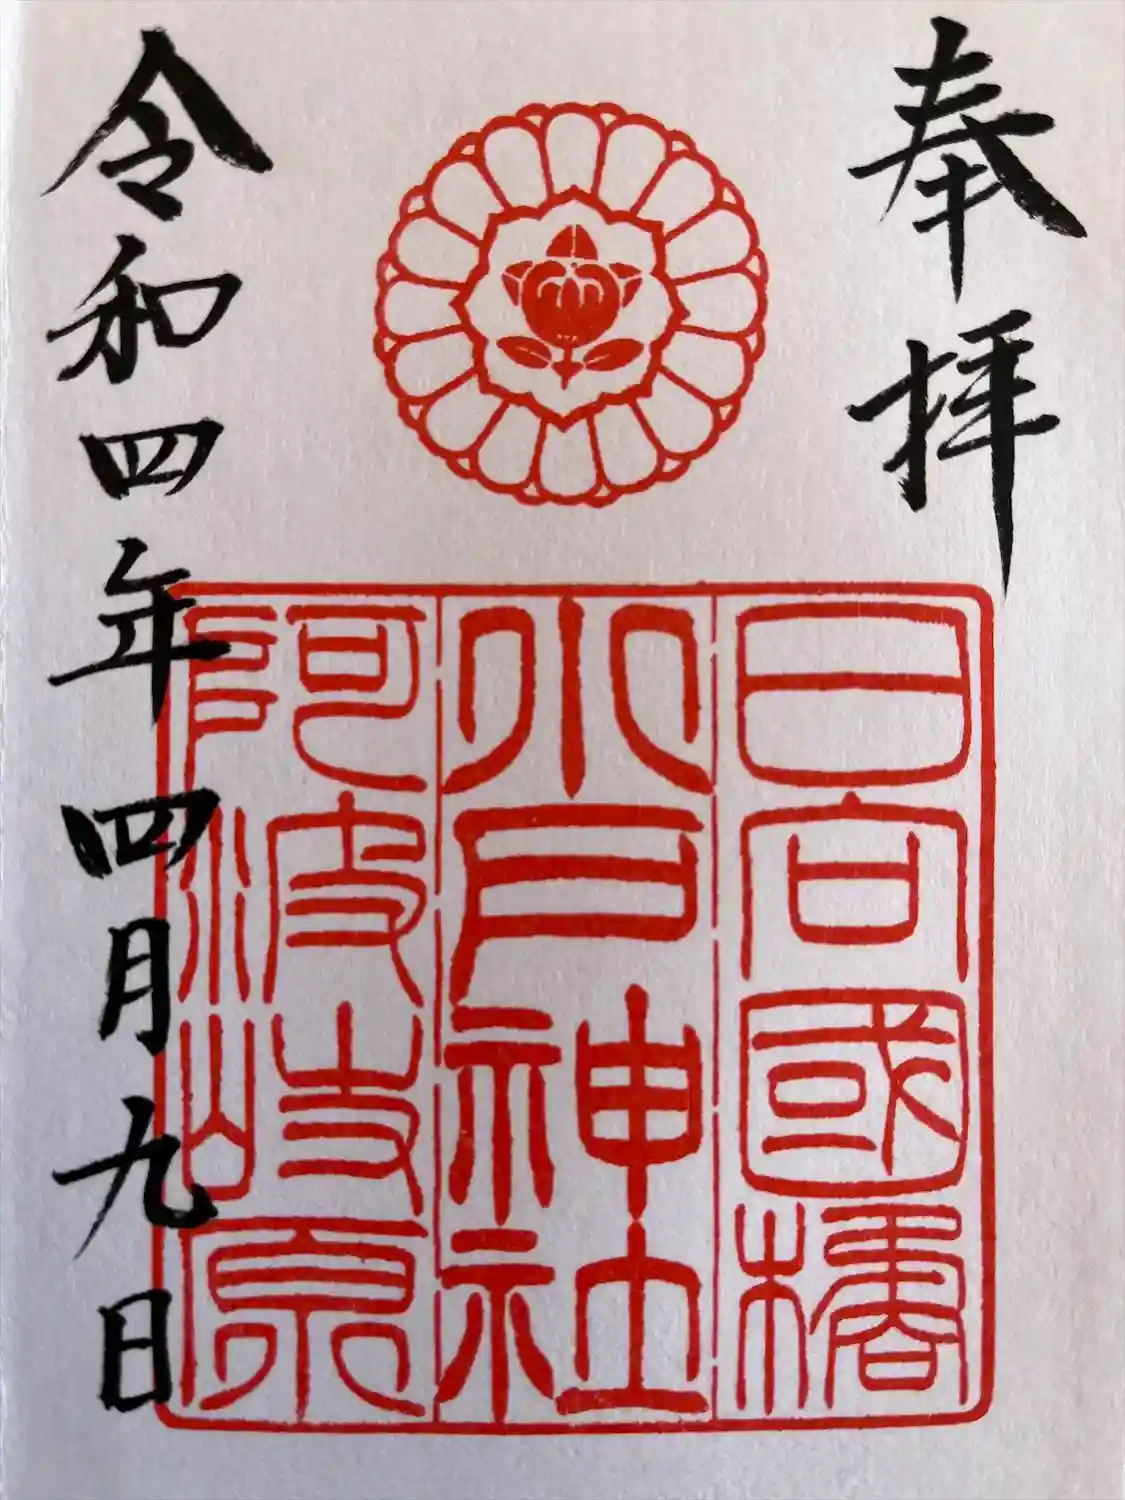 奉拝
日向國橘
小戸神社
阿波岐原
令和四年四月九日